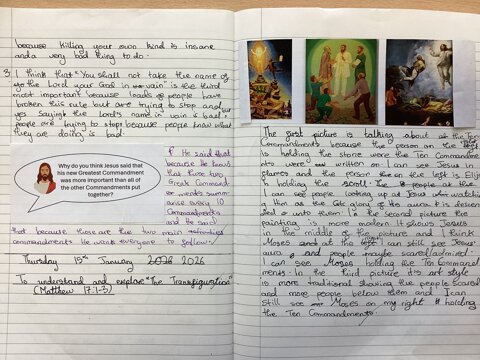 because killing your own kind is insane
and a very bad thing to do.
3. I think that "You shall not take the name of
the Lord your God in vain" is the third
most important because loads of people have
broken this rule but are trying to stop and
yes saying the Lord's name in vain is bad,
people are trying to stop because people know what
they are doing is bad.
Why do you think Jesus said that
his new Greatest Commandment
was more important than all of
the other Commandments put
together?
He said that
because He knows
that these two
Great Command-
ments summ-
arise every 10
Commandments
and he said
that because those are the two main
commandments He want everyone to follow.
Thursday 15th January 2026
To understand and explore "The Transfiguration"
(Matthew 17:1-3)
The first picture is talking about the Ten
Commandments because the person on the left
is holding the stone were the Ten Commandme
nts were written on. I can see Jesus in
flames and the person on the left is Elijah
holding the scroll. The people at the
I can see people looking up at Jesus watching
Him as the glory of His aura is descen
ded onto them. In the second picture the
painting is more modern. It shows Jesus
in the middle of the picture and I think
Moses and at the I can still see Jesus'
aura and people maybe scared/admired.
I can see Moses holding the Ten Command
ments. In the third picture its art style
is more traditional showing the people scared
and more people below them and I can
still see Moses on my right holding
the Ten Commandments.